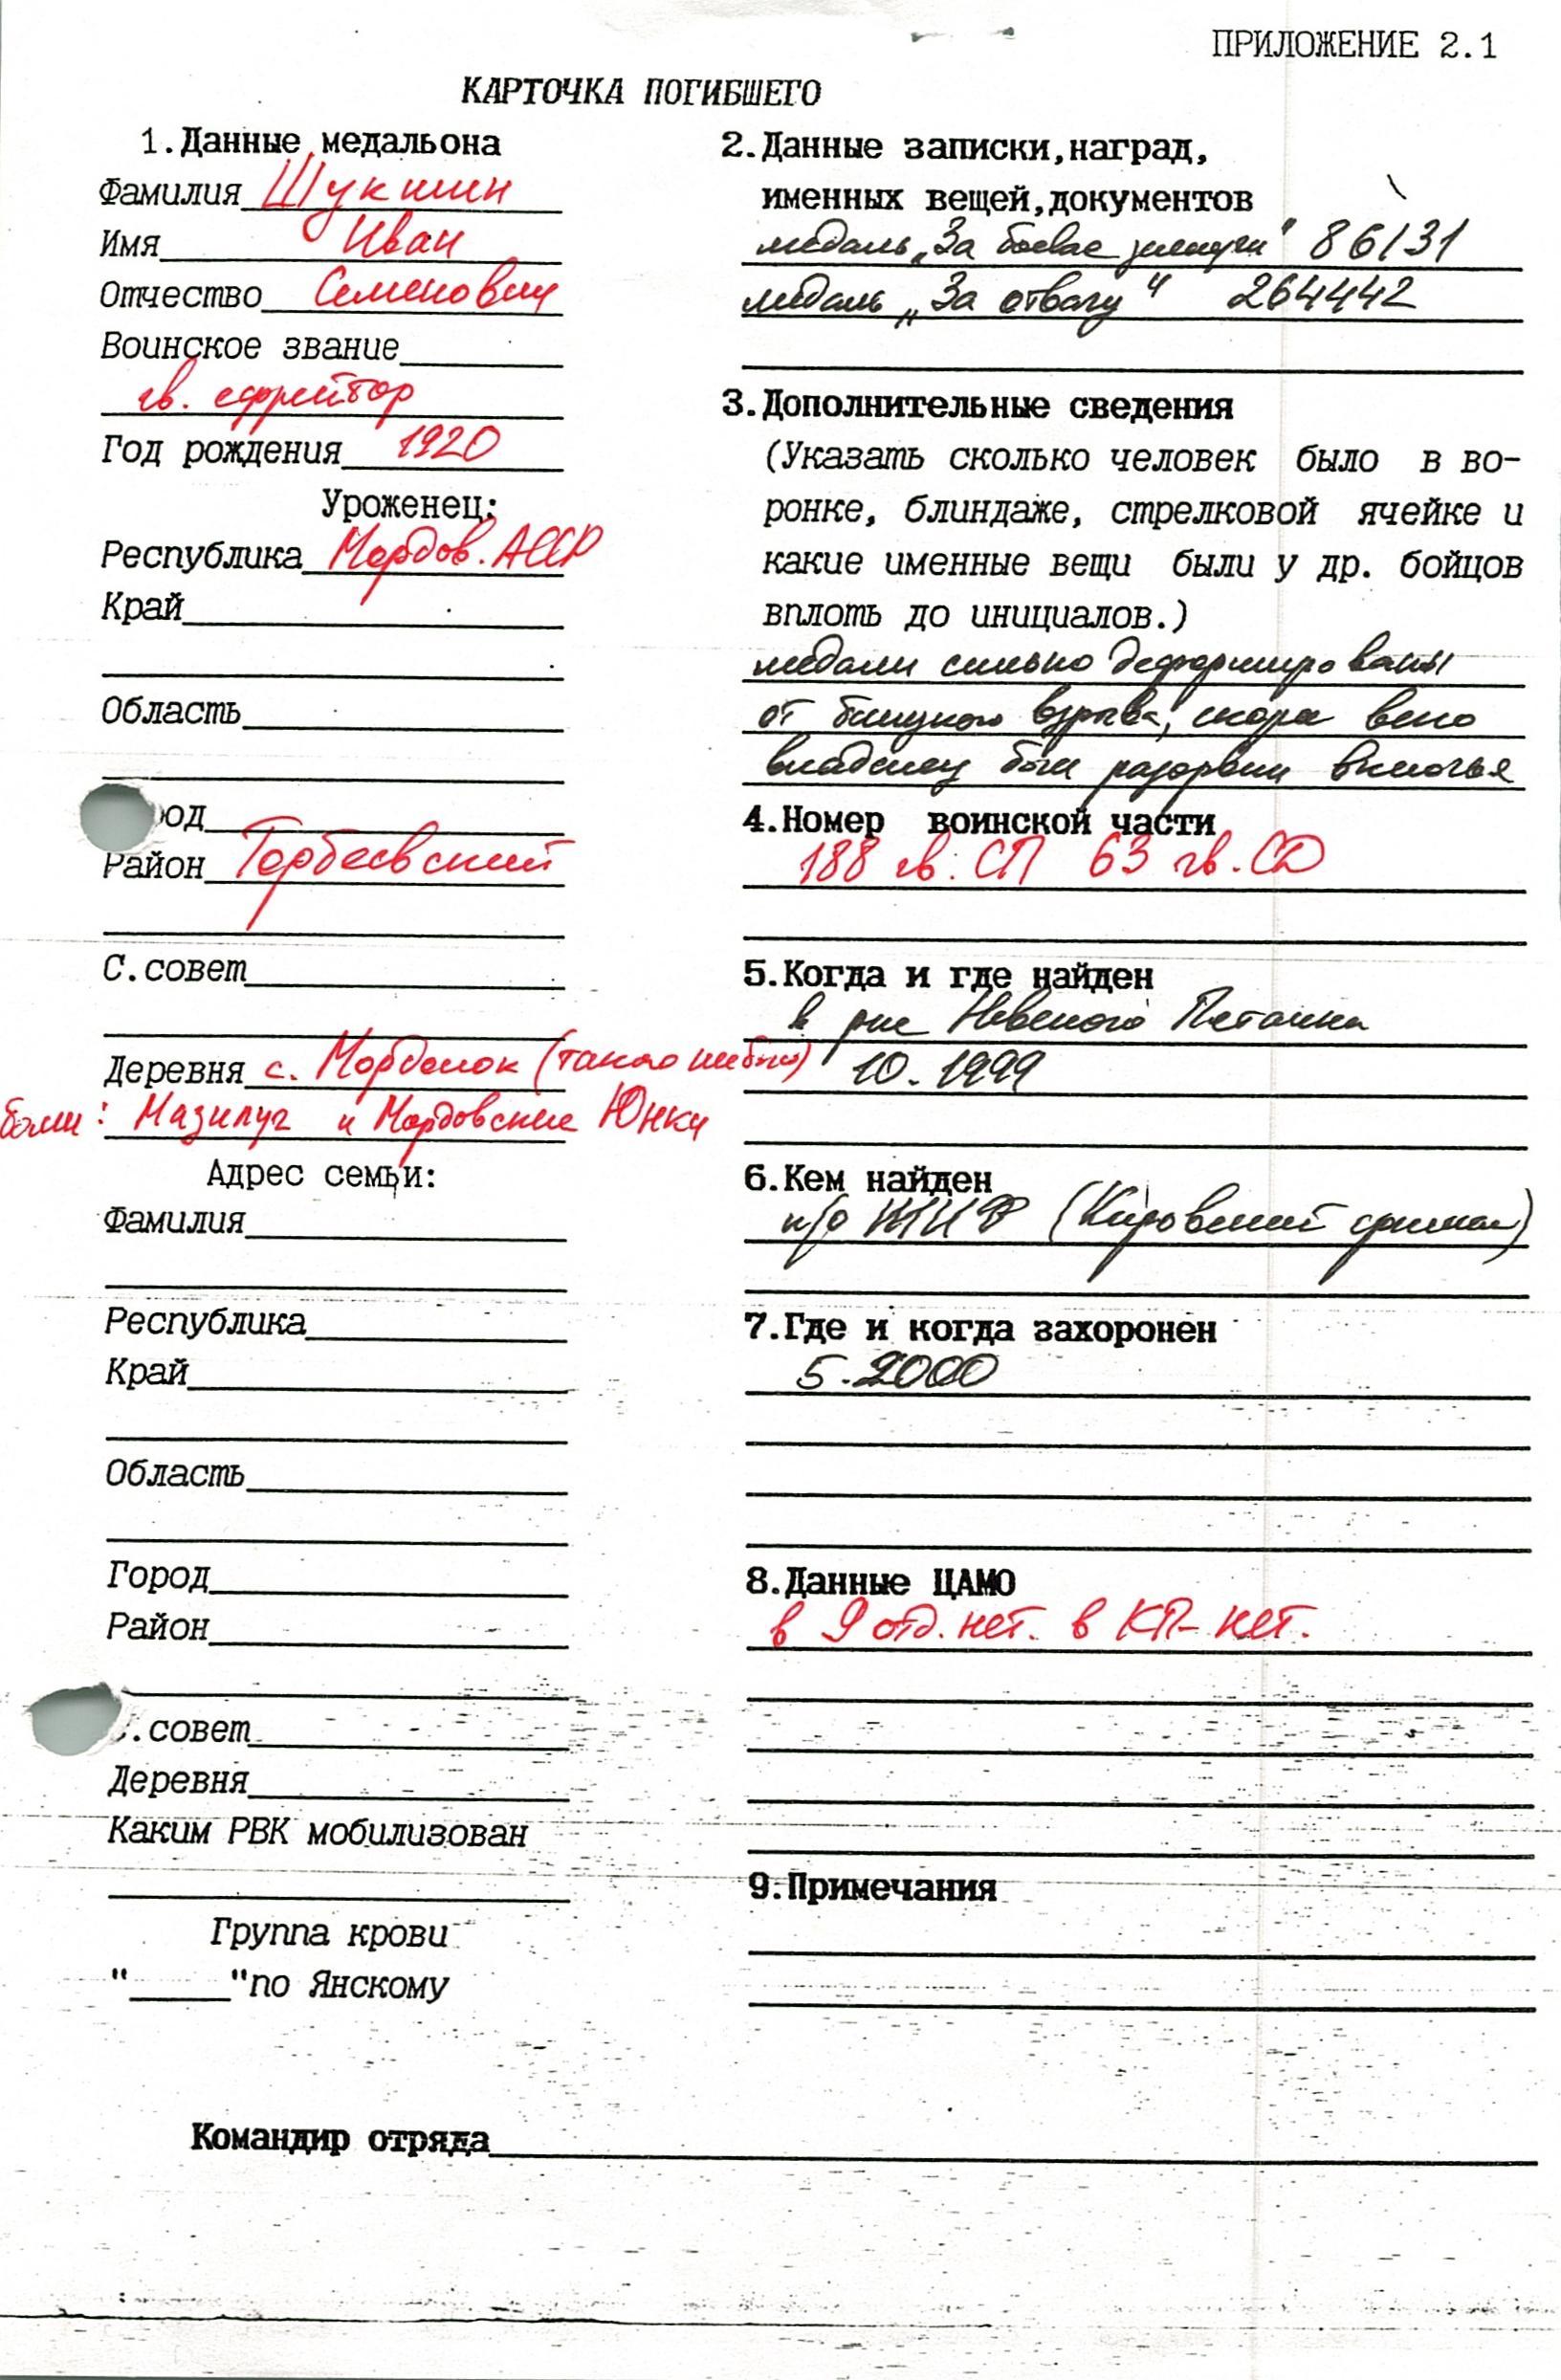 ПРИЛОЖЕНИЕ 2.1
КАРТОЧКА ПОГИБШЕГО
1.Данные медальона
Фамилия Щукшин
Имя Иван
Отчество Семенович
Воинское звание
гв. ефрейтор
Год рождения 1920
Уроженец:
Республика Мордов. АССР
Край
Область
род
Район Торбеевский
С.совет
Деревня с. Морделок (такого не было)
были: Мазилуг и Мордовские Юнки
Адрес семьи:
Фамилия
Республика
Край
Область
Город
Район
С.совет
Деревня
Каким РВК мобилизован
Группа крови
"_____"по Янскому
2.Данные записки,наград,
именных вещей,документов
медаль „За боевые заслуги" 86131
медаль „За отвагу" 264442
3.Дополнительные сведения
(Указать сколько человек было в во-
ронке, блиндаже, стрелковой ячейке и
какие именные вещи были у др. бойцов
вплоть до инициалов.)
медали сильно деформированы
от близкого взрыва, скорее всего
владелец был разорван в клочья
4.Номер воинской части
188 гв. СП 63 гв. СД
5.Когда и где найден
в р-не Невского Пятачка
10.1999
6.Кем найден
п/о (Кировский филиал)
7.Где и когда захоронен
5.2000
8.Данные ЦАМО
в 9 отд. нет. в КП- нет.
9.Примечания
Командир отряда